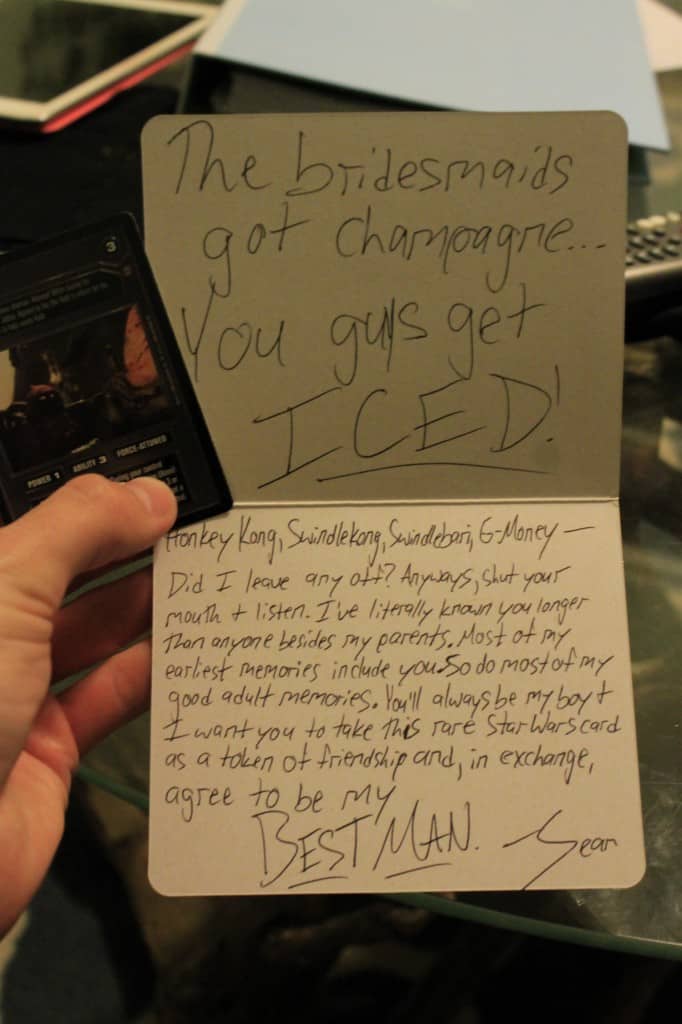 The bridesmaids
got champagne...
You guys get
ICED!
3
POWER 1 ABILITY 3 FORCE-ATTUNED
Honkey Kong, Swindlekong, Swindlebari, G-Money —
Did I leave any off? Anyways, shut your
mouth + listen. I've literally known you longer
than anyone besides my parents. Most of my
earliest memories include you. So do most of my
good adult memories. You'll always be my boy +
I want you to take this rare Star Wars card
as a token of friendship and, in exchange,
agree to be my
BEST MAN. —Sean